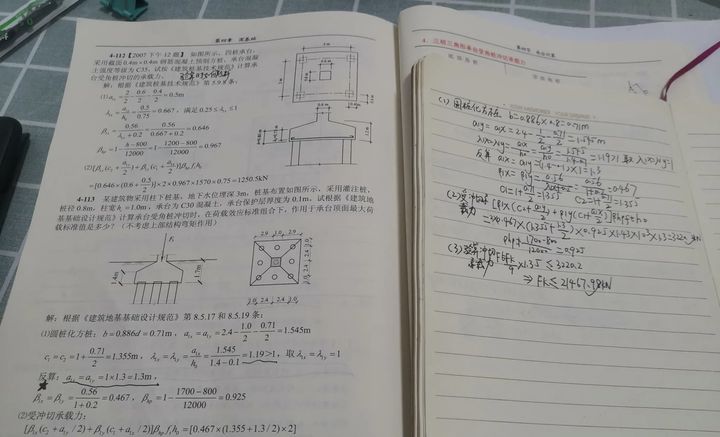 第四章 深基础
4-112【2007下午12题】如图所示，四桩承台，
采用截面0.4m×0.4m钢筋混凝土预制方桩，承台混凝
土强度等级为C35，试按《建筑桩基技术规范》计算承
台受角桩冲切的承载力。
解：根据《建筑桩基技术规范》第5.9.8条：
(1) a₁ₓ = 2/2 − 0.6/2 − 0.4/2 = 0.5m
λ₁ₓ = a₁ₓ/h₀ = 0.5/0.75 = 0.667，满足0.25≤λ₁ₓ≤1
β₁ₓ = 0.56/(λ₁ₓ+0.2) = 0.56/(0.667+0.2) = 0.646
βhp = 1 − (h−800)/12000 = 1 − (1200−800)/12000 = 0.967
(2) [β₁ₓ(c₂ + a₁ᵧ/2) + β₁ᵧ(c₁ + a₁ₓ/2)]βhp ft h₀
= [0.646×(0.6 + 0.5/2)]×2×0.967×1570×0.75 = 1250.5kN
4-113 某建筑物采用柱下桩基，地下水位埋深3m，桩基布置如图所示，采用灌注桩，
桩径0.8m，柱宽λ=1.0m，承台为C30混凝土，承台保护层厚度为0.1m，试根据《建筑地
基基础设计规范》计算承台受角桩冲切时，在荷载效应标准组合下，作用于承台顶面最大荷
载标准值是多少？（不考虑上部结构弯矩作用）
Fₖ
1.4m
1.7m
2.0 2.4 2.4 2.0
1.0 2.4 2.4 1.0
解：根据《建筑地基基础设计规范》第8.5.17和8.5.19条：
(1)圆桩化方桩：b = 0.886d = 0.71m，a₁ₓ = a₁ᵧ = 2.4 − 1.0/2 − 0.71/2 = 1.545m
c₁ = c₂ = 1 + 0.71/2 = 1.355m，λ₁ₓ = λ₁ᵧ = a₁ₓ/h₀ = 1.545/(1.4−0.1) = 1.19>1，取λ₁ₓ = λ₁ᵧ = 1
反算：a₁ₓ = a₁ᵧ = 1×1.3 = 1.3m，
β₁ₓ = β₁ᵧ = 0.56/(1+0.2) = 0.467，βhp = 1 − (1700−800)/12000 = 0.925
(2)受冲切承载力：
[β₁ₓ(c₂ + a₁ᵧ/2) + β₁ᵧ(c₁ + a₁ₓ/2)]βhp ft h₀ = [0.467×(1.355 + 1.3/2)×2]
4. 三桩三角形承台受角桩冲切承载力
(1) 圆桩化方桩 b=0.886×0.8=0.71m
a1y=a1x=2.4−1/2−0.71/2=1.545m
λ1x=λ1y=a1x/h0=a1y/h0=1.545/(1.4−0.1)=1.19>1 取λ1x=λ1y=1
反算 a1x=a1y=(1.4−0.1)×1=1.3
β1x=β1y=0.56/(λ1x+0.2)=0.56/(1+0.2)=0.467
C1=1+0.71/2=1.355 C2=1+0.71/2=1.355
(2) 受冲切承载力 [β1x(C2+a1y/2)+β1y(C1+a1x/2)]βhp ft h0
βhp=1−(1700−800)/12000=0.925
(3) 受荷冲切承载力 Fk/9×1.35≤3220.2
⇒ Fk≤21467.98kN